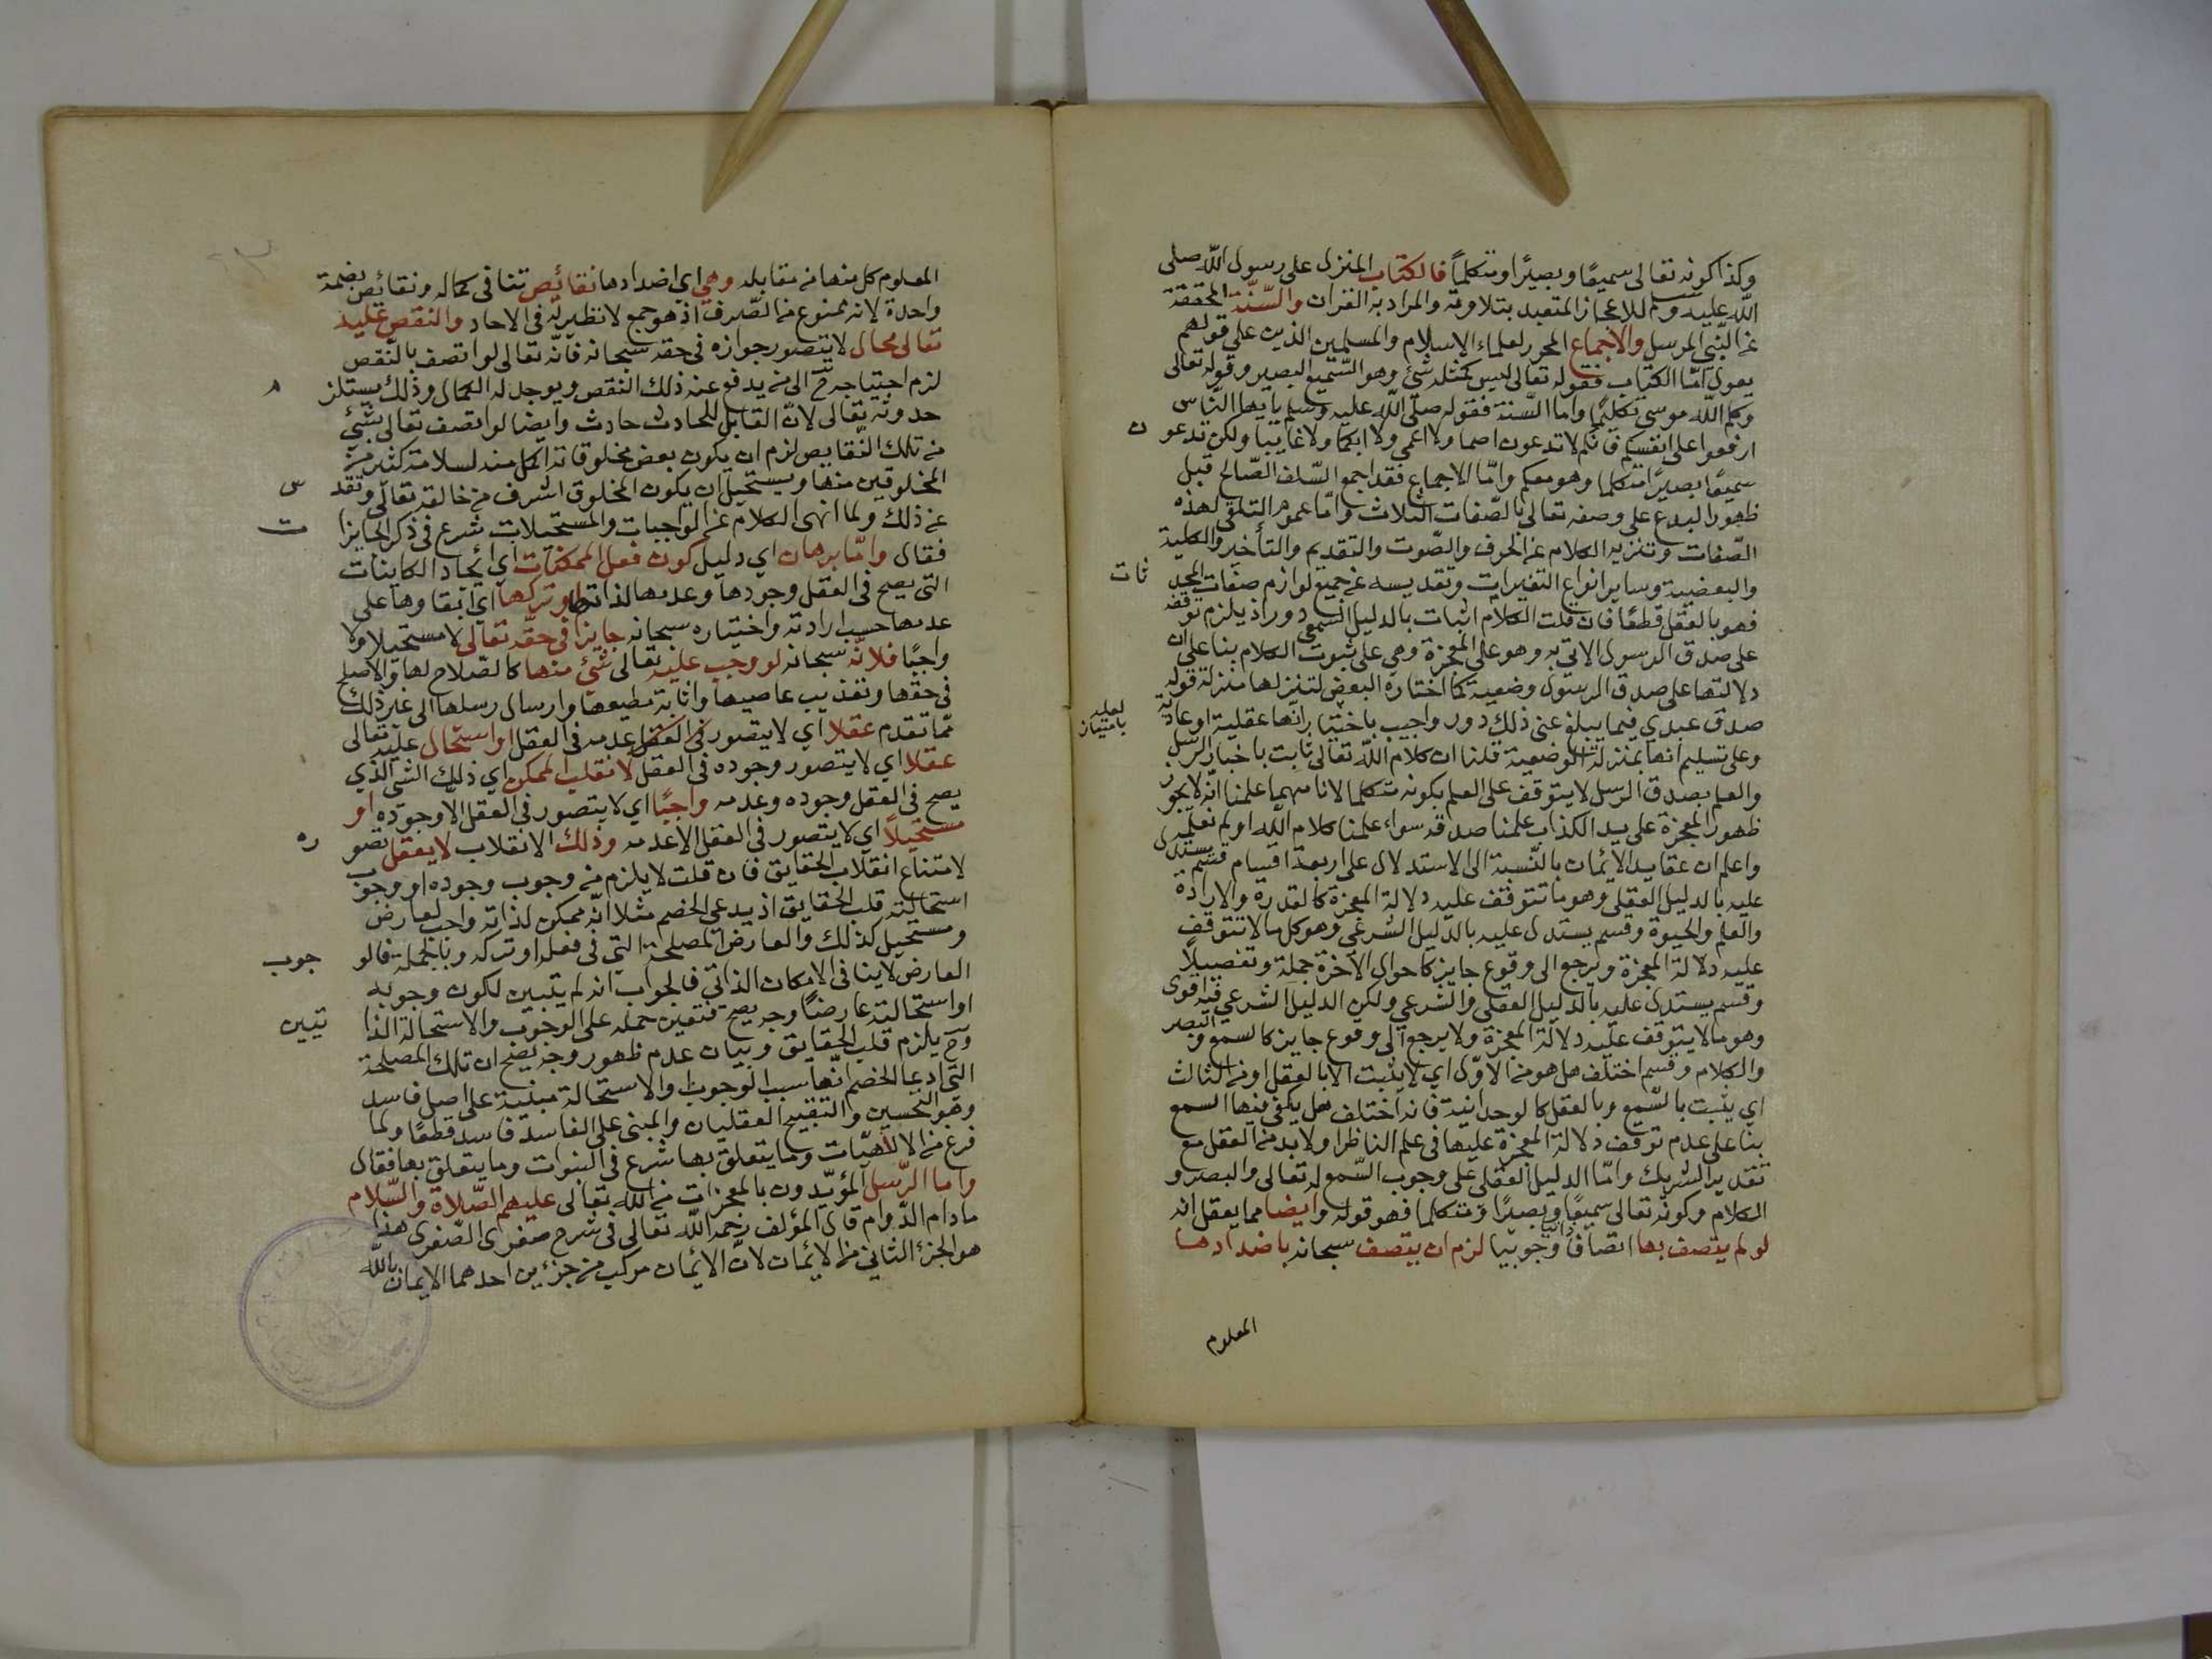 وكذا كونه تعالى سميعًا وبصيرًا ومتكلمًا فالكتاب المنزل على رسول الله صلى
الله عليه وسلم للاعجاز المتعبد بتلاوته والمراد به القران والسّنّة المحققة
عن النّبي المرسل والاجماع المحرر لعلماء الاسلام والمسلمين الذين على قولهم
يعول امّا الكتاب فقوله تعالى ليس كمثله شئ وهو السّميع البصير وقوله تعالى
وكلم الله موسى تكليمًا واما السّنة فقوله صلّى الله عليه وسلم يا يها النّاس
ارفعوا على انفسكم فانكم لا تدعون اصما ولا اعمى ولا ابكما ولا غايبا ولكن تدعو ن
سميعًا بصيرًا متكلما وهو معكم وامّا الاجماع فقد اجمع السّلف الصّالح قبل
ظهور البدع على وصفه تعالى بالصّفات الثلاث وامّا عموم التعلق لهذه
الصّفات وتنزيه الكلام عن الحرف والصّوت والتقديم والتأخير والكلية
والبعضية وساير انواع التغيرات وتقديسه عن جميع لوازم صفات المحد ثات
فهو بالعقل قطعًا فان قلت الكلام اثبات بالدليل السمعي دور اذ يلزم توقفه
على صدق الرسول الاتي به وهو على المعجزة وهي على ثبوت الكلام بنا على ان
دلالتها على صدق الرسول وضعية كما اختاره البعض لتنزلها منزلة قوله
صدق عبدي فيما يبلغ عنى ذلك دور واجيب باختيار انّها عقلية او عادية
لعله باعتبار
وعلى تسليم انها بمنزلة الوضعية قلنا ان كلام الله تعالى ثابت باخبار الرّسل
والعلم بصدق الرسل لا يتوقف على العلم بكونه متكلما لانا مهما علمنا انّه لا يجوز
ظهور المعجزة على يد الكذاب علمنا صدقه سواء علمنا كلام الله او لم نعلمه
واعلم ان عقايد الايمان بالنّسبة الى الاستدلال على اربعة اقسام قسم يستدل
عليه بالدليل العقلي وهو ما تتوقف عليه دلالة المعجزة كالقدرة والارادة
والعلم والحيوة وقسم يستدل عليه بالدّليل الشرعي وهو كل ما لا تتوقف
عليه دلالة المعجزة ويرجع الى وقوع جايز كاحوال الاخرة جملة وتفصيلًا
وقسم يستدل عليه بالدليل العقلي والشرعي ولكن الدليل الشرعي فيه اقوى
وهو ما لا يتوقف عليه دلالة المعجزة ولا يرجع الى وقوع جايز كالسمع والبصر
والكلام وقسم اختلف هل هو من الاوّل اي لا يثبت الا بالعقل او من الثالث
اي يثبت بالسّمع وبالعقل كالوحدانية فانه اختلف هل يكفي فيها السمع
بنا على عدم توقف دلالة المعجزة عليها في علم الناظر او لا بد من العقل مع
تقدير الشريك وامّا الدليل العقلي على وجوب السّمع له تعالى والبصر و
الكلام وكونه تعالى سميعًا وبصيرًا ومتكلما فهو قوله وايضا مما يعقل انه
لو لم يتصف بها اتصافًا وجوبيا لزم ان يتصف سبحانه باضدادها
المعلوم
المعلوم كل منها من مقابله وهي اي اضدادها نقائص تنافى كماله ونقائص بضمة
واحدة لانه ممنوع من الصّرف اذ هو جمع لا نظير له فى الاحاد والنقص عليه
تعالى محال لا يتصور جوازه فى حقه سبحانه فانّه تعالى لو اتصف بالنّقص
لزم احتياجه ح الى من يدفع عنه ذلك النقص ويوجد له الكمال وذلك يستلز م
حدوثه تعالى لانّ القابل للحادث حادث وايضا لو اتصف تعالى بشئ
من تلك النّقايص لزم ان يكون بعض مخلوقاته اكمل منه لسلامة كثير من
المخلوقين منها ويستحيل ان يكون المخلوق اشرف من خالقه تعالى وتقد س
عن ذلك ولما انهى الكلام عن الواجبات والمستحيلات شرع في ذكر الجايزا ت
فقال وامّا برهان اي دليل كون فعل الممكنات اي ايجاد الكاينات
التى يصح فى العقل وجودها وعدمها لذاتها او تركها اي ابقاوها على
عدمها حسب ارادته واختياره سبحانه جايزا في حقّه تعالى لا مستحيلا ولا
واجبًا فلانّه سبحانه لو وجب عليه تعالى شئ منها كالصّلاح لها والاصلح
فى حقها وتعذيب عاصيها واثابة مطيعها وارسال رسلها الى غير ذلك
ممّا تقدم عقلا اي لا يتصور في العقل عدمه فى العقل او استحال عليه تعالى
عقلا اي لا يتصور وجوده فى العقل لانقلب الممكن اي ذلك الشئ الذي
يصح فى العقل وجوده وعدمه واجبًا اي لا يتصور فى العقل الا وجوده او
مستحيلًا اي لا يتصور فى العقل الا عدمه وذلك الانقلاب لا يعقل تصو ره
لامتناع انقلاب الحقايق فان قلت لا يلزم من وجوب وجوده او وجوب
استحالته قلب الحقايق اذ يدعي الخصم مثلا انّه ممكن لذاته واجب لعارض
ومستحيل كذلك والعارض المصلحة التى فى فعله او تركه وبالجملة فالو جوب
العارض لا ينافى الامكان الذاتي فالجواب انه لم يتبين لكون وجوبه
او استحالته عارضًا وجه يصح فتعين حمله على الوجوب والاستحالة الذا تيين
وح يلزم قلب الحقايق وبيان عدم ظهور وجه يصح ان تلك المصلحة
التى ادعا الخصم انّها سبب الوجوب والاستحالة مبنية على اصل فاسد
وهو التحسين والتقبيح العقليان والمبني على الفاسد فاسد قطعًا ولما
فرغ من الالٰهيّات وما يتعلق بها شرع فى النبوات وما يتعلق بها فقال
واما الرّسل المؤيّدون بالمعجزات من الله تعالى عليهم الصّلاة والسّلام
ما دام الدّوام قال المؤلف رحمه الله تعالى فى شرح صغرى الصّغرى هذا
هو الجزء الثاني من الايمان لانّ الايمان مركب من جزءين احدهما الايمان بالله